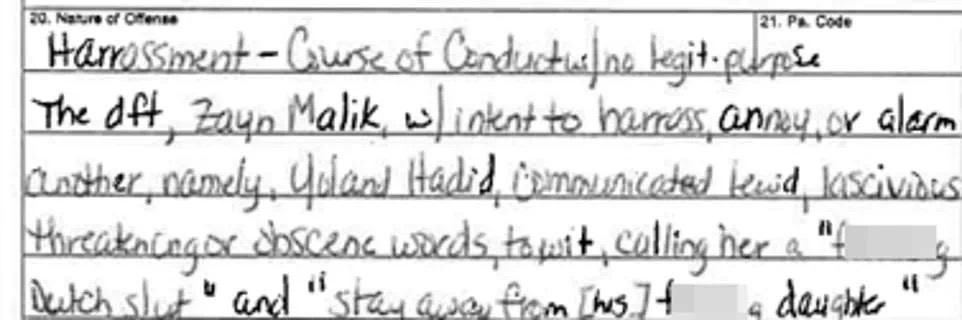 20. Nature of Offense 21. Pa. Code
Harrossment - Course of Conduct w/ no legit. purpose
The dft, Zayn Malik, w/ intent to harrass, annoy, or alarm
another, namely, Yoland Hadid, communicated lewd, lascivious
threatening or obscene words, to wit, calling her a "f g
Dutch slut" and "stay away from [his] f g daughter"